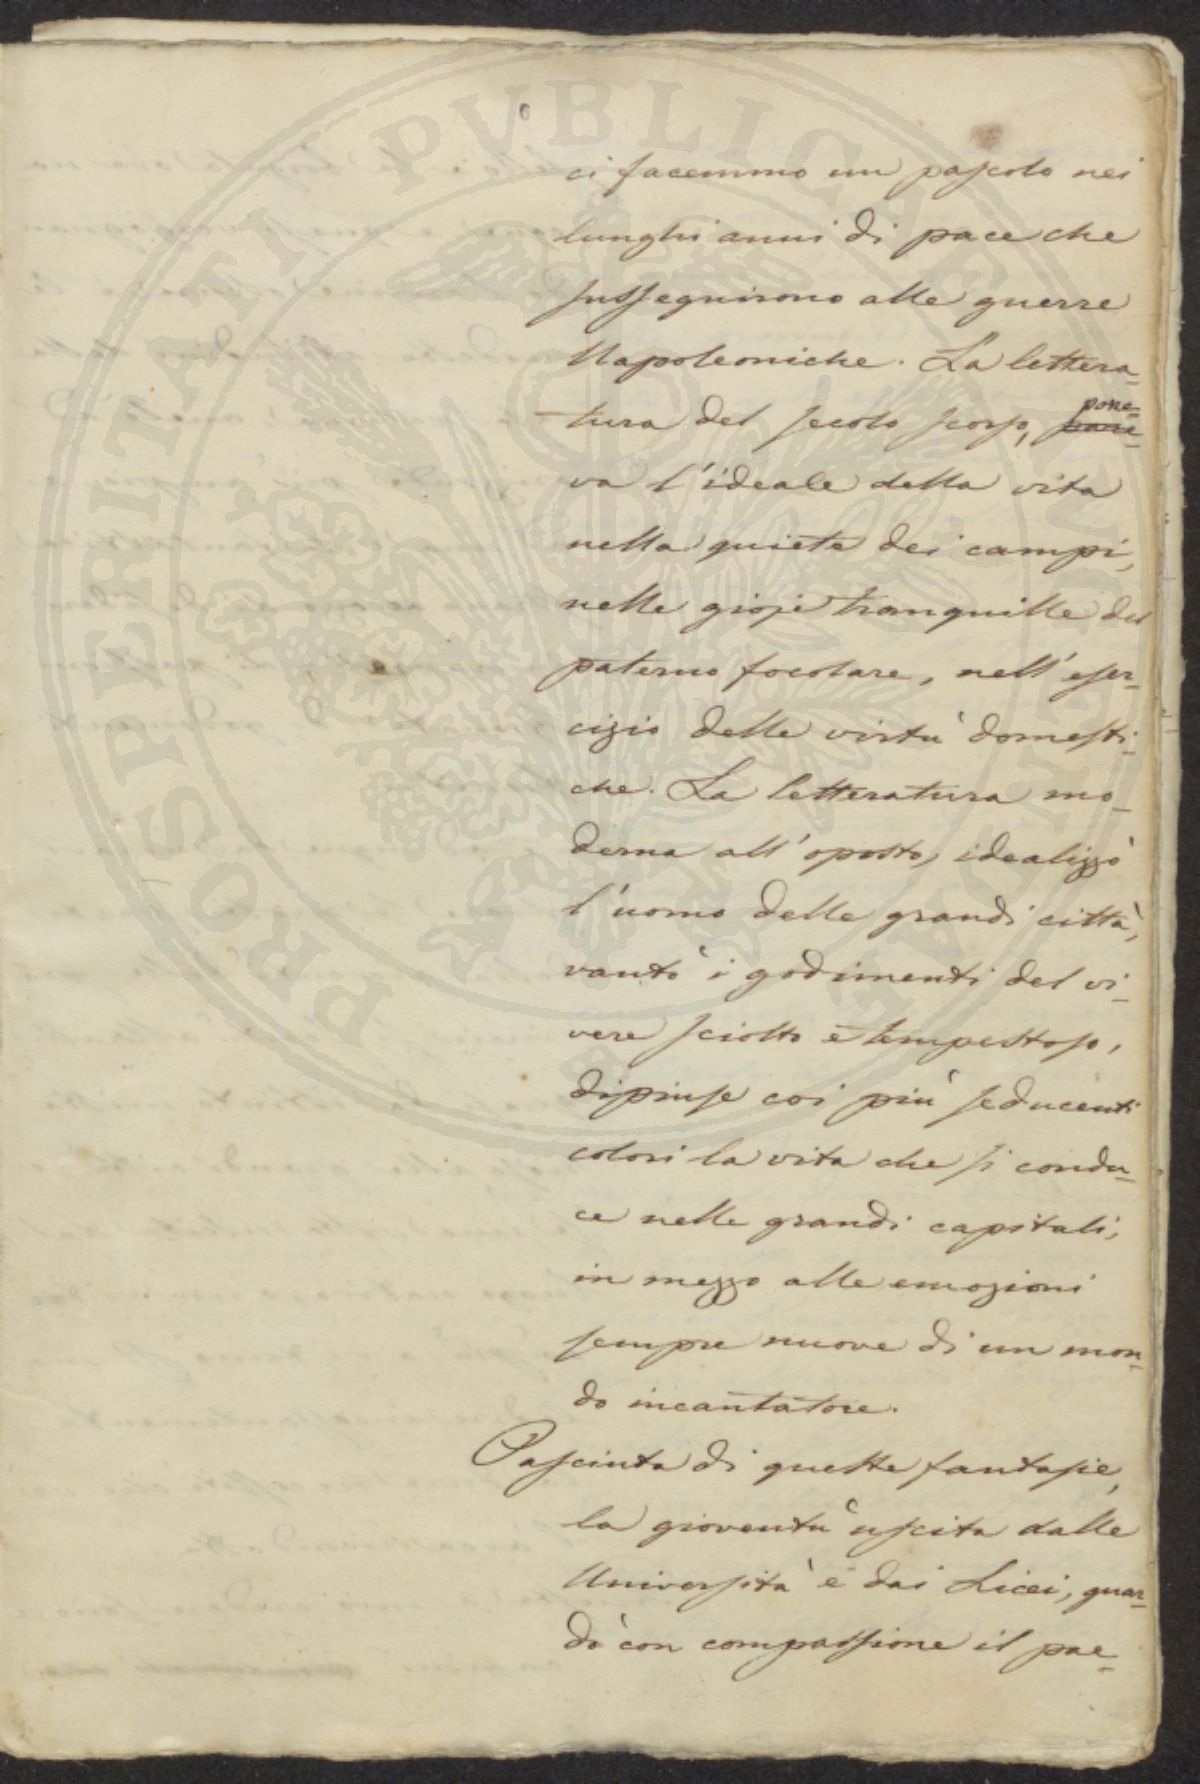 6
ci facemmo un pascolo nei
lunghi anni di pace che
susseguirono alle guerre
Napoleoniche. La lettera-
tura del secolo scorso, pone-
va l'ideale della vita
nella quiete dei campi,
nelle gioje tranquille del
paterno focolare, nell'eser-
cizio delle virtù domesti-
che. La letteratura mo-
derna all'oposto, idealizzò
l'uomo delle grandi città,
vantò i godimenti del vi-
vere sciolto e tempestoso,
dipinse coi più seducenti
colori la vita che si condu-
ce nelle grandi capitali,
in mezzo alle emozioni
sempre nuove di un mon-
do incantatore.
Pasciuta di queste fantasie,
la gioventù uscita dalle
Università e dai Licei, guar-
dò con compassione il pae-
PROSPERITATI PVBLICAE AVGENDAE